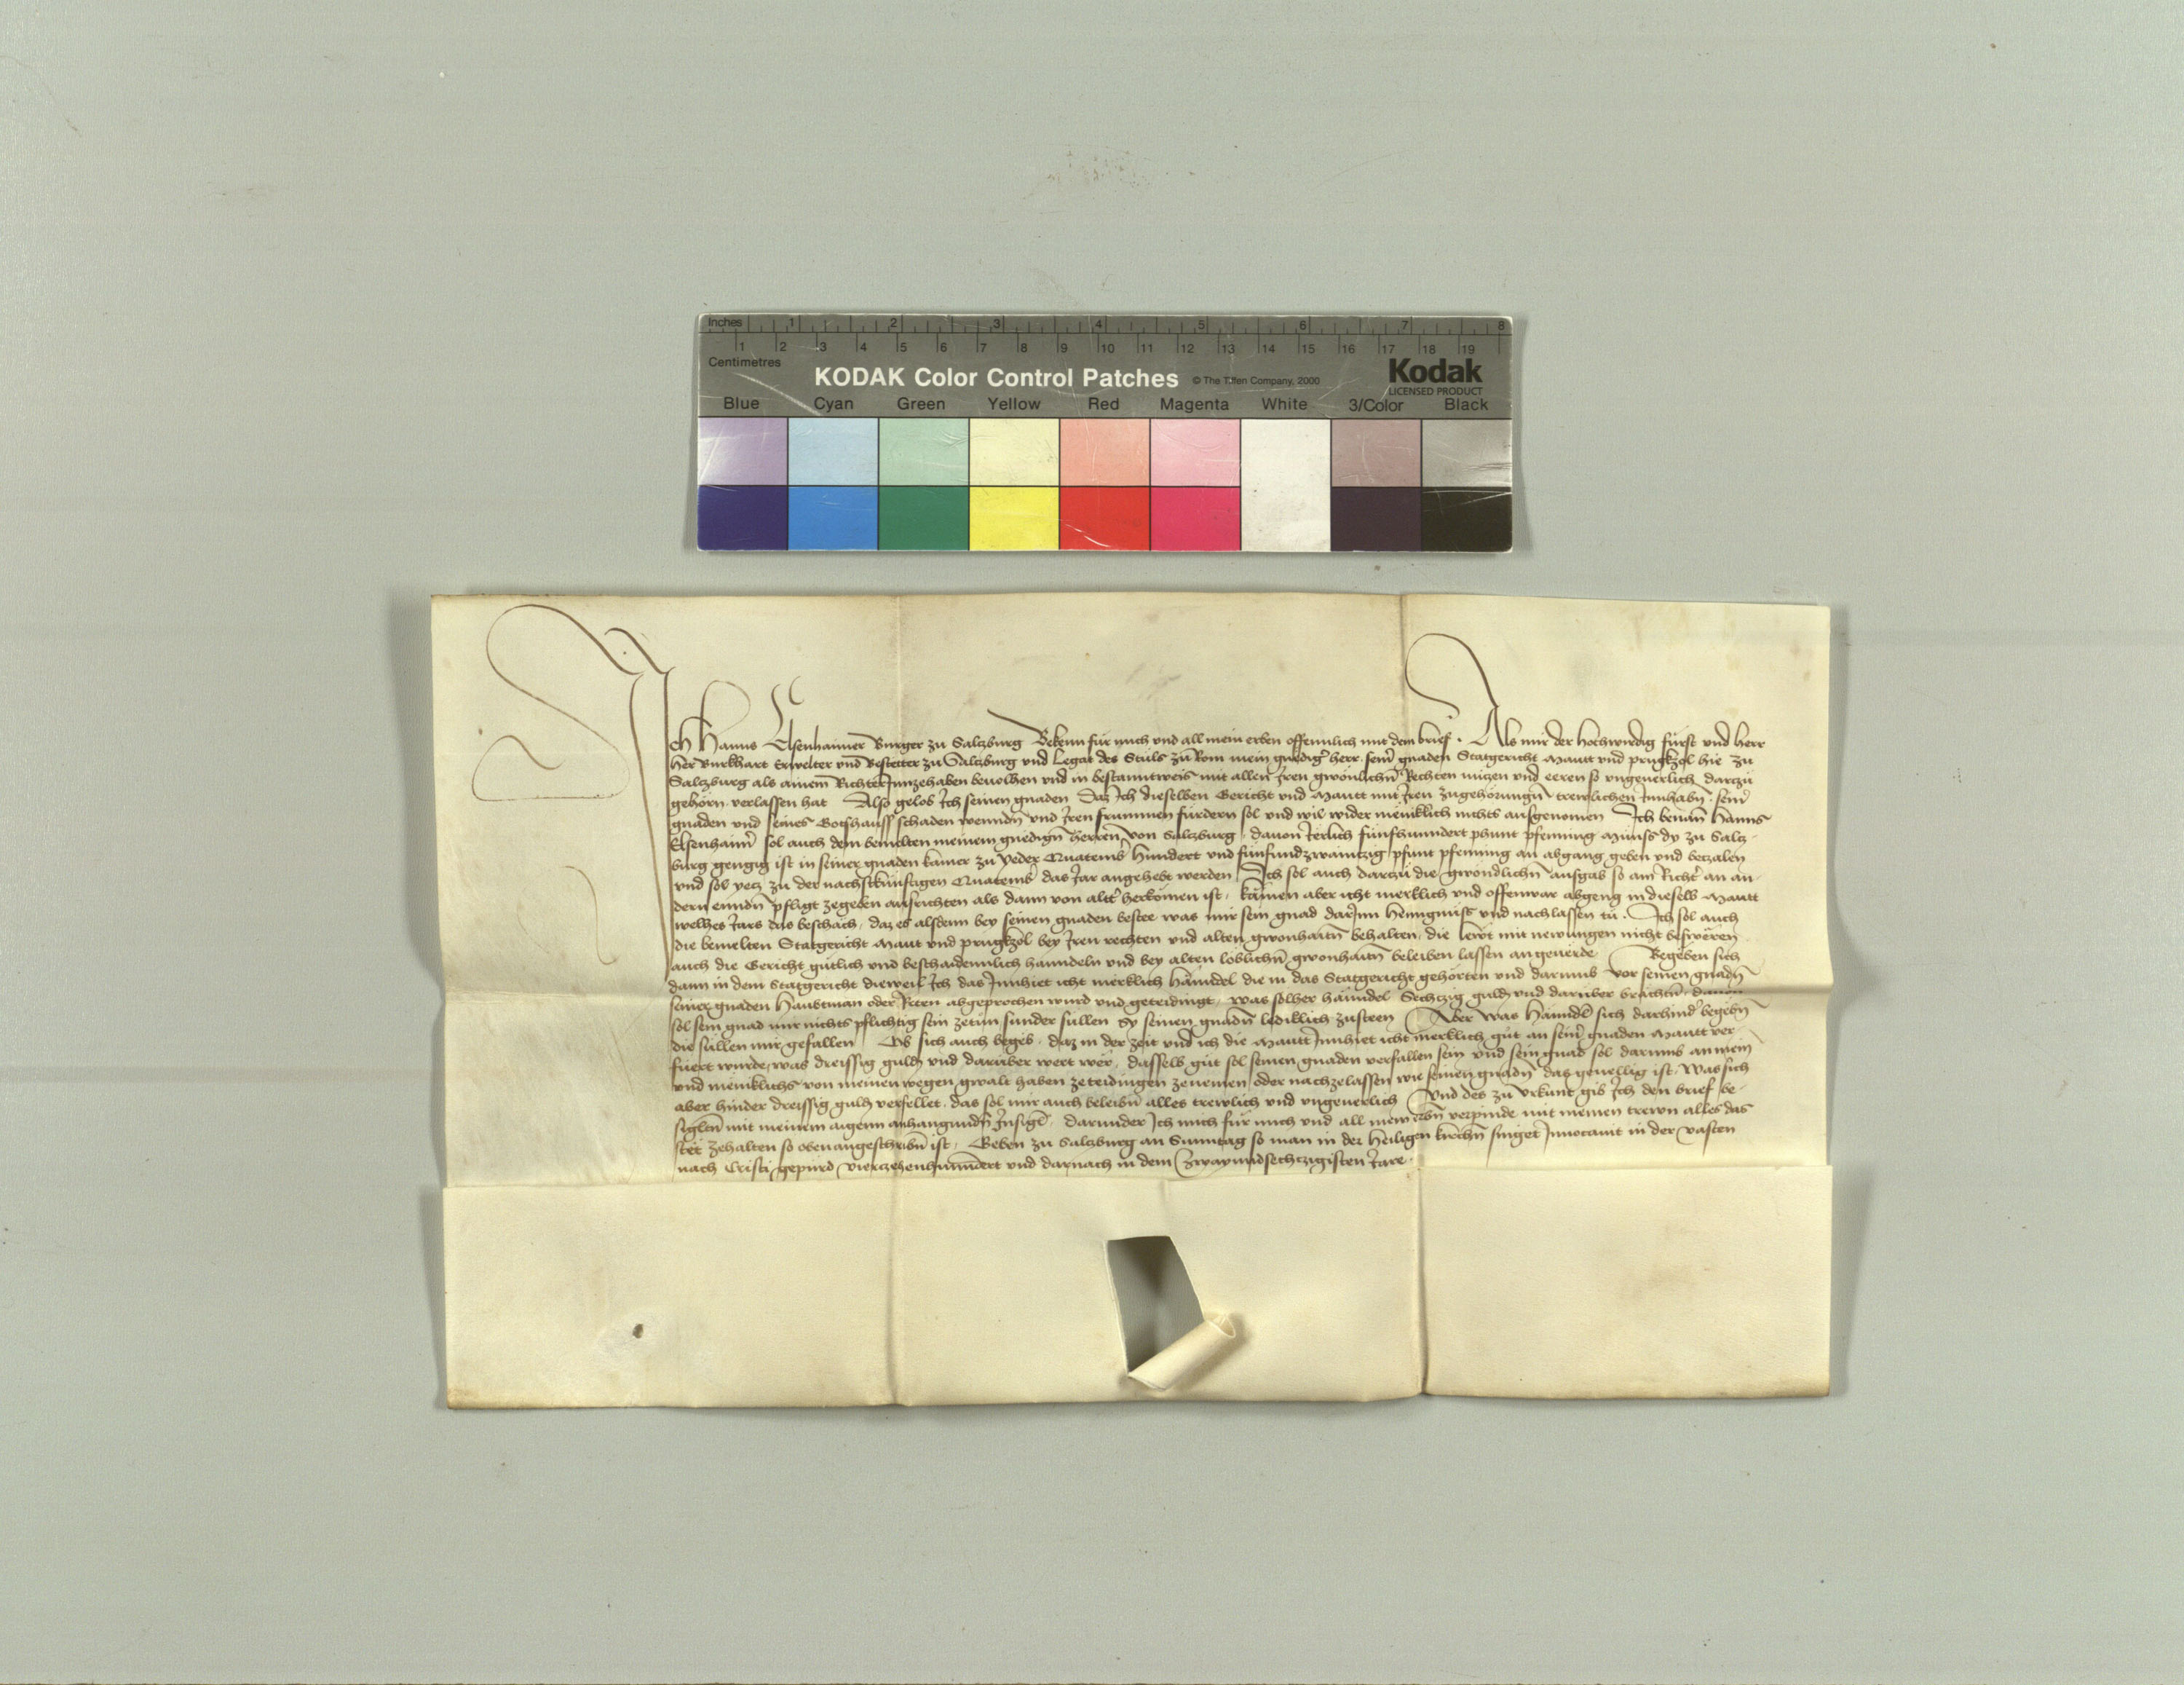 Inches 1 2 3 4 5 6 7 8
1 2 3 4 5 6 7 8 9 10 11 12 13 14 15 16 17 18 19
Centimetres
KODAK Color Control Patches © The Tiffen Company, 2000 Kodak
LICENSED PRODUCT
Blue Cyan Green Yellow Red Magenta White 3/Color Black
Ich Hanns Elsenhaimer Burger zu Salzburg Bekenn für mich und all mein erben offennlich mit dem brief. Als mir der hochwirdig fürst und herr
her Burkhart Erwelter und Bestetter zu Salzburg und Legat des Stuls zu Rom mein gnedigr herr seinr gnaden Statgericht Mautt und prugkzol hie zu
Salzburg als ainem Richter Innzehaben beuolhen und in bestanntweis mit allen Iren gwonlichn Rechten nuczen und eeren so ungeuerlich darczu
gehorn verlassen hat Also gelob Ich seinen gnaden Daz Ich dieselben Gericht und Mautt mit Iren zugehorungn trewlichen Innhabn seinr
gnaden und seines Gotshauss schaden wenndn und Iren frummen fürdern sol und wil wider meniklich nichts ausgenomen Ich benan Hanns
Elsenhaimr sol auch dem bemelten meinem gnedign herren von Salzburg dauon Ierlich fünfhunndert phunt pfenning Munss dy zu Saltz-
burg gengig ist in seiner gnaden kamer zu yeder Quatemb hundert und fünfundzwainczig pfunt pfenning an abgang geben und beczalen
und sol yecz zu der nachstkünftigen Quatemb das Jar angehebt werden Ich sol auch darczu die gwondlichn ausgab so ain Richtr an an-
dern enndn pfligt zegeben ausrichten als dann von altr herkomen ist, kämen aber icht merklich und offenwar abgeng in dieselb Mautt
welhes Jars das beschäch, daz es alsdenn bey seinen gnaden bestee was mir sein gnad darInn hinngnuss und nachlassen tü. Ich sol auch
die bemelten Statgericht Maut und prugkzol bey Iren rechten und alten gwonhaitn behalten, die lewt mit newungen nicht beswëren
auch die Gericht gütlich und beschaidennlich hanndeln und bey alten loblichn gwonhaitn beleiben lassen an geuerde Begeben sich
dann in dem Statgericht dieweil Ich das Innhiet icht merklich händel die in das Statgericht gehörten und darumb vor seinen gnadn
seiner gnaden Haubtman oder Reten abgeprochen wurd und geteidingt, was solher hänndel Sechczig guld und daruber brächtn dauon
sol sein gnad mir nichts pflichtig sein zetun sunder süllen Sy seinen gnadn lediklich zusteen Aber was hänndl sich darhindr begebn
die süllen mir geuallen Ob sich auch begeb, daz in der zeit und ich die Mautt Innhiet icht merklich güt an seinr gnaden Mautt ver-
fuert wurde, was dreissig guld und daruber wert wër, dasselb güt sol seinen gnaden verfallen sein und sein gnad sol darumb an mein
und meniklichs von meinen wegen gwalt haben zeteidingen zenemen oder nachzelassen wie seinen gnadn das geuellig ist, Was sich
aber hinder dreissig guld verfellet, das sol mir auch beleibn alles trewlich und ungeuerlich Und des zu Urkunt gib Ich den brief be-
sigltn mit meinem aigenn anhangundn Insigl, darunder Ich mich für mich und all mein erbn verpinde mit meinen trewn alles das
stet zehalten so oben angeschribn ist, Geben zu Salzburg an Sunntag so man in der Heiligen kirchn singet Inuocauit in der vasten
nach Cristi gepurd vierczehenhunndert und darnach in dem Zwayundsechczigisten Jare.